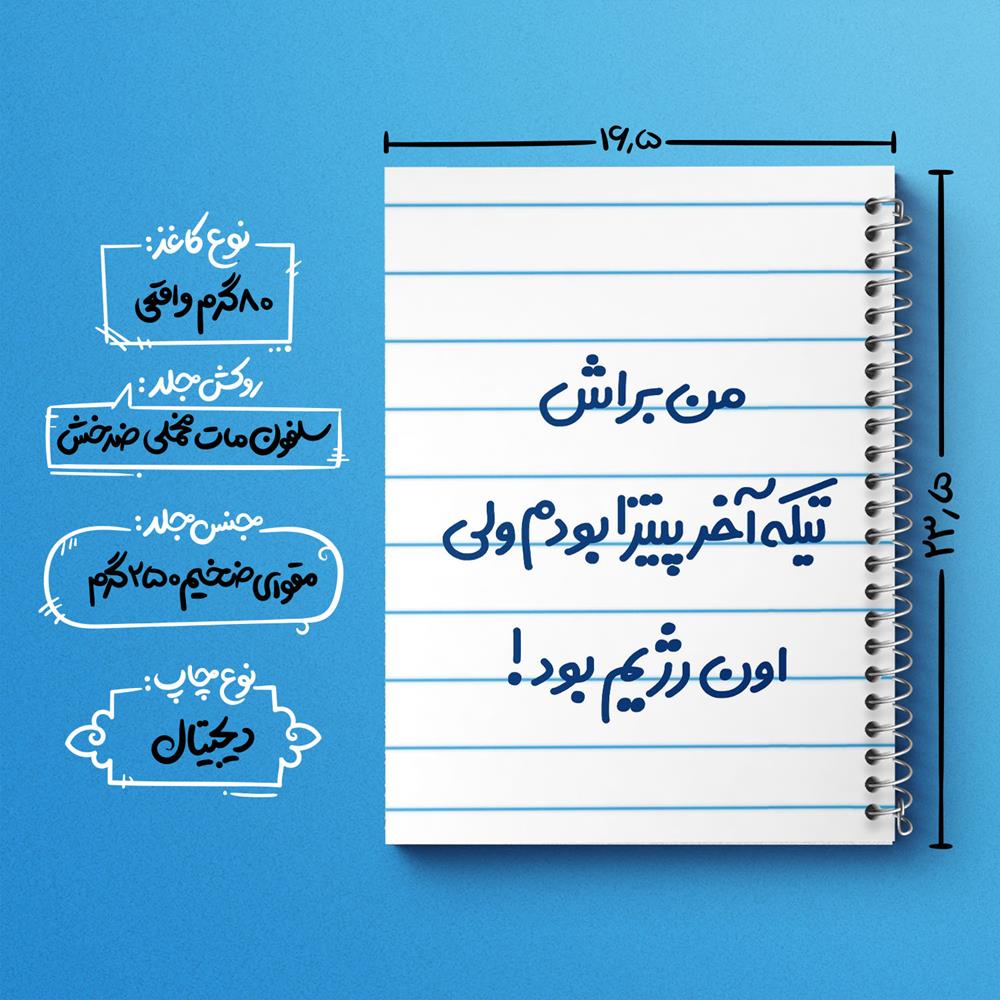 ۱۶٫۵
۲۳٫۵
نوع کاغذ:
۸۰ گرم واقعی
روکش جلد:
سلفون مات مخملی ضدخش
جنس جلد:
مقوای ضخیم ۲۵۰ گرم
نوع چاپ:
دیجیتال
من براش
تیکه آخر پیتزا بودم ولی
اون رژیم بود!